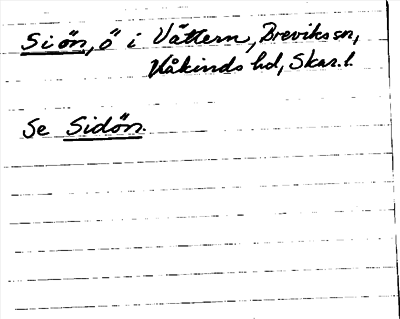 Siön, ö i Vättern, Brevikssn,
Kåkinds hd, Skar.l.
Se Sidön.